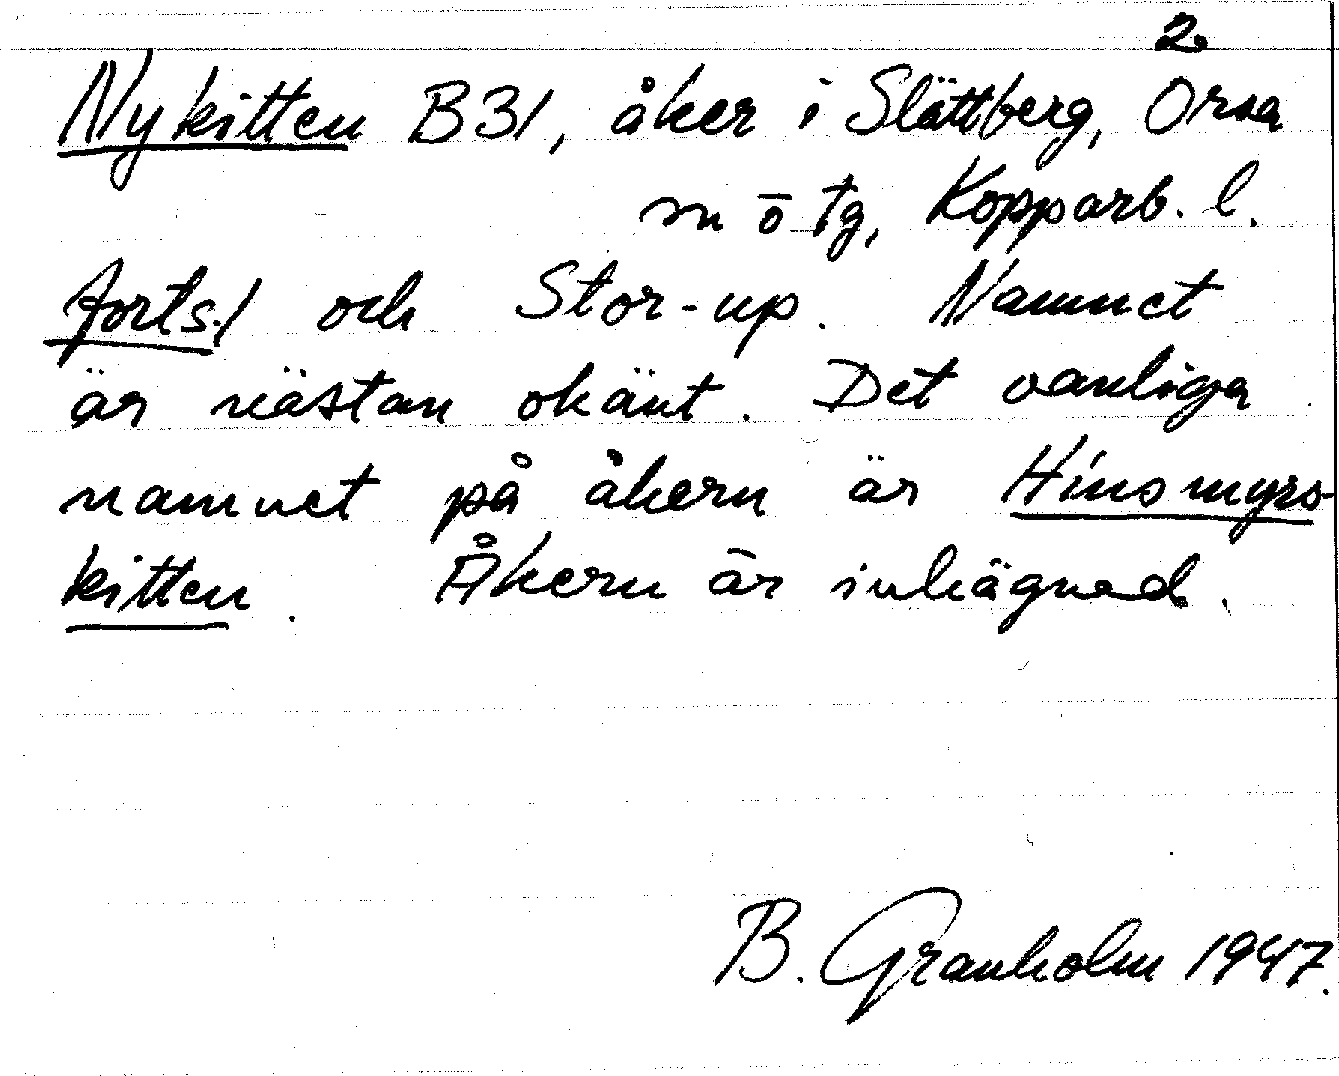 2.
Nykitten B31, åker i Slättberg, Orsa
sn ö tg, Kopparb. l.
forts./ och Stor-up. Namnet
är nästan okänt. Det vanliga
namnet på åkern är Hinsmyrs-
kitten. Åkern är inhägnad.
B. Granholm 1947.